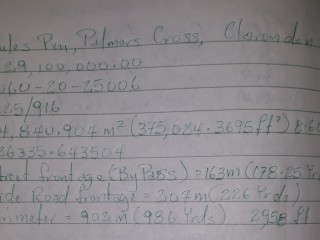 ules Pen, Palmers Cross, Clarendon
29,100,000.00
060-20-25006
25/916
4,840.907 m² (375,024.3695 ft²) 8.60
86335.643504
treet frontage (By Pass) = 163m (178.25 Yrds
ide Road frontage = 207m (226 Yrds)
rimeter = 902m (986 Yrds) 2958 ft